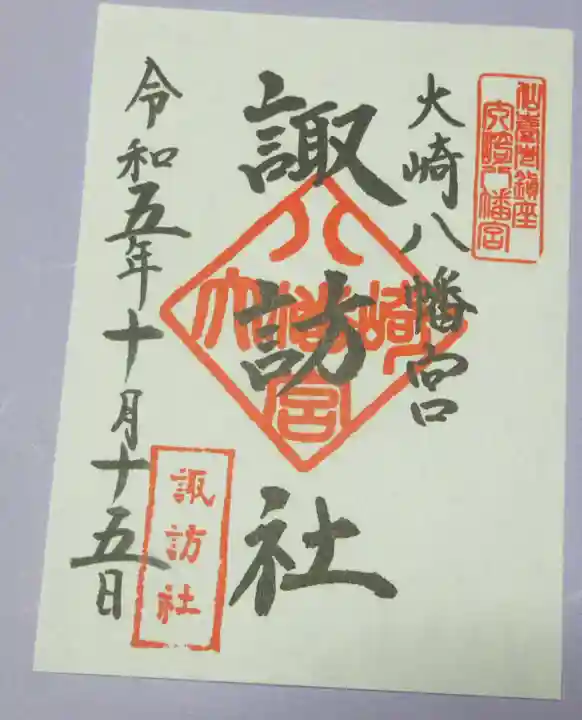 仙臺總鎮座
大崎八幡宮
大崎八幡宮
諏訪社
八幡宮
大崎
諏訪社
令和五年十月十五日